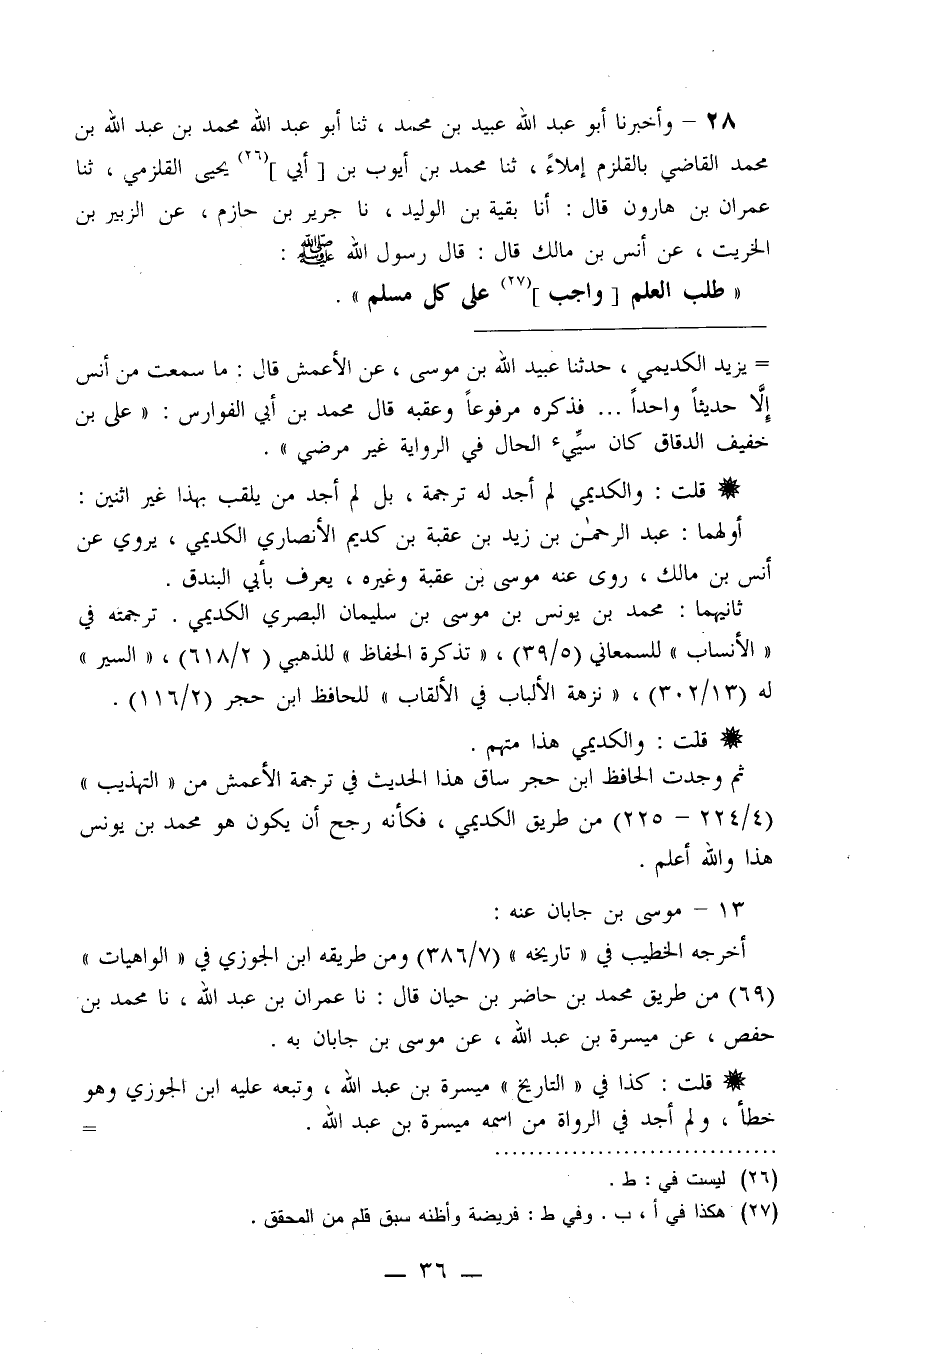 ٢٨ – وأخبرنا أبو عبد الله عبيد بن محمد ، ثنا أبو عبد الله محمد بن عبد الله بن
محمد القاضي بالقلزم إملاءً ، ثنا محمد بن أيوب بن [ أبي ](٢٦) يحيى القلزمي ، ثنا
عمران بن هارون قال : أنا بقية بن الوليد ، نا جرير بن حازم ، عن الزبير بن
الخريت ، عن أنس بن مالك قال : قال رسول الله ﷺ :
« طلب العلم [ واجب ](٢٧) على كل مسلم » .
= يزيد الكديمي ، حدثنا عبيد الله بن موسى ، عن الأعمش قال : ما سمعت من أنس
إلَّا حديثاً واحداً ... فذكره مرفوعاً وعقبه قال محمد بن أبي الفوارس : « على بن
خفيف الدقاق كان سيِّىء الحال في الرواية غير مرضي » .
✹ قلت : والكديمي لم أجد له ترجمة ، بل لم أجد من يلقب بهذا غير اثنين :
أولهما : عبد الرحمٰن بن زيد بن عقبة بن كديم الأنصاري الكديمي ، يروي عن
أنس بن مالك ، روى عنه موسى بن عقبة وغيره ، يعرف بأبي البندق .
ثانيهما : محمد بن يونس بن موسى بن سليمان البصري الكديمي . ترجمته في
« الأنساب » للسمعاني (٣٩/٥) ، « تذكرة الحفاظ » للذهبي ( ٦١٨/٢) ، « السير »
له (٣٠٢/١٣) ، « نزهة الألباب في الألقاب » للحافظ ابن حجر (١١٦/٢) .
✹ قلت : والكديمي هذا متهم .
ثم وجدت الحافظ ابن حجر ساق هذا الحديث في ترجمة الأعمش من « التهذيب »
(٢٢٤/٤ – ٢٢٥) من طريق الكديمي ، فكأنه رجح أن يكون هو محمد بن يونس
هذا والله أعلم .
١٣ – موسى بن جابان عنه :
أخرجه الخطيب في « تاريخه » (٣٨٦/٧) ومن طريقه ابن الجوزي في « الواهيات »
(٦٩) من طريق محمد بن حاضر بن حيان قال : نا عمران بن عبد الله ، نا محمد بن
حفص ، عن ميسرة بن عبد الله ، عن موسى بن جابان به .
✹ قلت : كذا في « التاريخ » ميسرة بن عبد الله ، وتبعه عليه ابن الجوزي وهو
خطأ ، ولم أجد في الرواة من اسمه ميسرة بن عبد الله . =
(٢٦) ليست في : ط .
(٢٧) هكذا في أ ، ب . وفي ط : فريضة وأظنه سبق قلم من المحقق .
— ٣٦ —